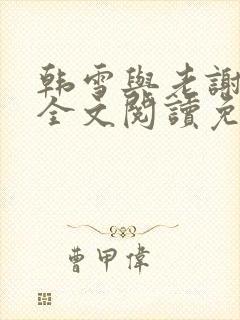 韩雪與老謝
全文閱讀免
曹甲偉